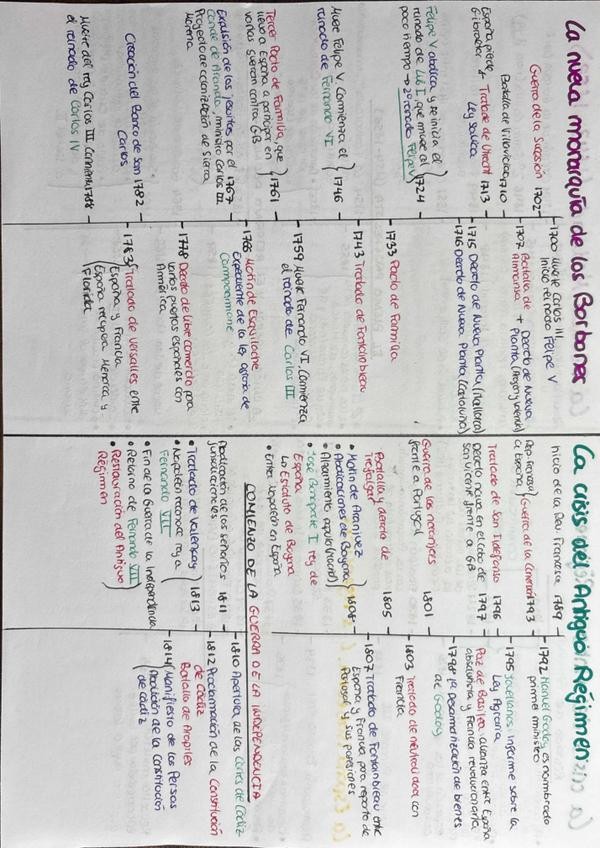 La nueva monarquía de los Borbones
1700 Muere Carlos III
Inicio reinado Felipe V
Guerra de la Sucesión 1702
1707 Batalla de Almansa + Decreto de Nueva Planta (Aragón y Valencia)
Batalla de Villaviciosa 1710
España pierde Gibraltar
Tratado de Utrecht 1713
Ley Salica
1715 Decreto de Nueva Planta (Mallorca)
1716 Decreto de Nueva Planta (Cataluña)
Felipe V abdica y se inicia el
reinado de Luis I, que muere al
poco tiempo → 2º reinado Felipe V
1724
1733 Pacto de Familia
1743 Tratado de Fontainbleau
Muere Felipe V. Comienza el
reinado de Fernando VI
1746
1759 Muere Fernando VI. Comienza
el reinado de Carlos III
Tercer Pacto de Familia, que
llevó a España a participar en
varias guerras contra GB
1761
1766 Motín de Esquilache
Expediente de la ley agraria de
Campomanes
Expulsión de los jesuitas por el 1767
Conde de Aranda, ministro Carlos III
Proyecto de colonización de Sierra
Morena
1778 Decreto de libre comercio para
varios puertos españoles con
América
Creación del Banco de San 1782
Carlos
1783 Tratado de Versalles entre
España y Francia
España recupera Menorca y
Florida
Muere del rey Carlos III. Comienza 1788
el reinado de Carlos IV
La crisis del Antiguo Régimen
Inicio de la Rev Francesa 1789
1792 Manuel Godoy es nombrado
primer ministro
Guerra de la Convención 1793
1795 Jovellanos informe sobre la
Ley Agraria
Paz de Basilea alianza entre España
absolutista y Francia revolucionaria
Tratado de San Ildefonso 1796
Derrota naval en el Cabo de 1797
San Vicente frente a GB
1798 1ª Desamortización de bienes
de Godoy
Guerra de las naranjas 1801
frente a Portugal
1803 Tratado de neutralidad con
Francia
Batalla y derrota de 1805
Trafalgar
1807 Tratado de Fontainbleau entre
España y Francia para reparto de
Portugal y sus posesiones
• Motín de Aranjuez
• Abdicaciones de Bayona
• Alzamiento popular (Madrid)
• José Bonaparte I rey de
España
Estatuto de Bayona
• Entra Napoleón en España
1808
COMIENZO DE LA GUERRA DE LA INDEPENDENCIA
1810 Apertura de las Cortes de Cádiz
Abolición de los señoríos 1811
jurisdiccionales
1812 Proclamación de la Constitución
de Cádiz
Batalla de Arapiles
• Tratado de Valençay
• Napoleón reconoce rey a
Fernando VII
1813
• Fin de la Guerra de la Independencia
• Reinado de Fernando VII
• Restauración del Antiguo
Régimen
1814 Manifiesto de los Persas
Abolición de la constitución
de Cádiz